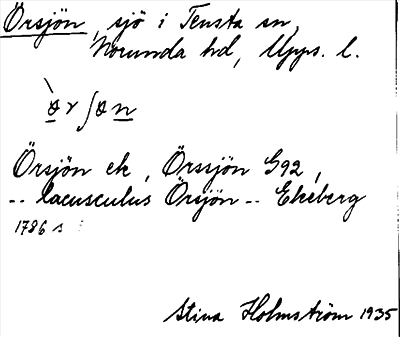 Örsjön, sjö i Tensta sn,
Norunda hd, Upps. l.
Örsjön ek, Örssjön G92,
-- lacusculus Örsjön -- Ekeberg
1786 s
Stina Holmström 1935